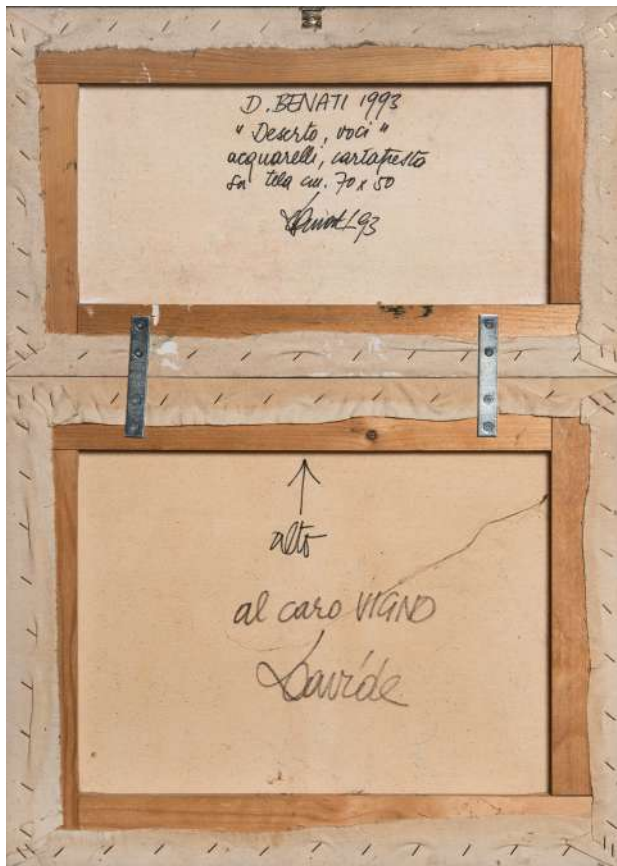 D. BENATI 1993
"Deserto, voci"
acquarelli, cartapesta
su tela cm. 70 x 50
93
alto
al caro VIGNO
Davide